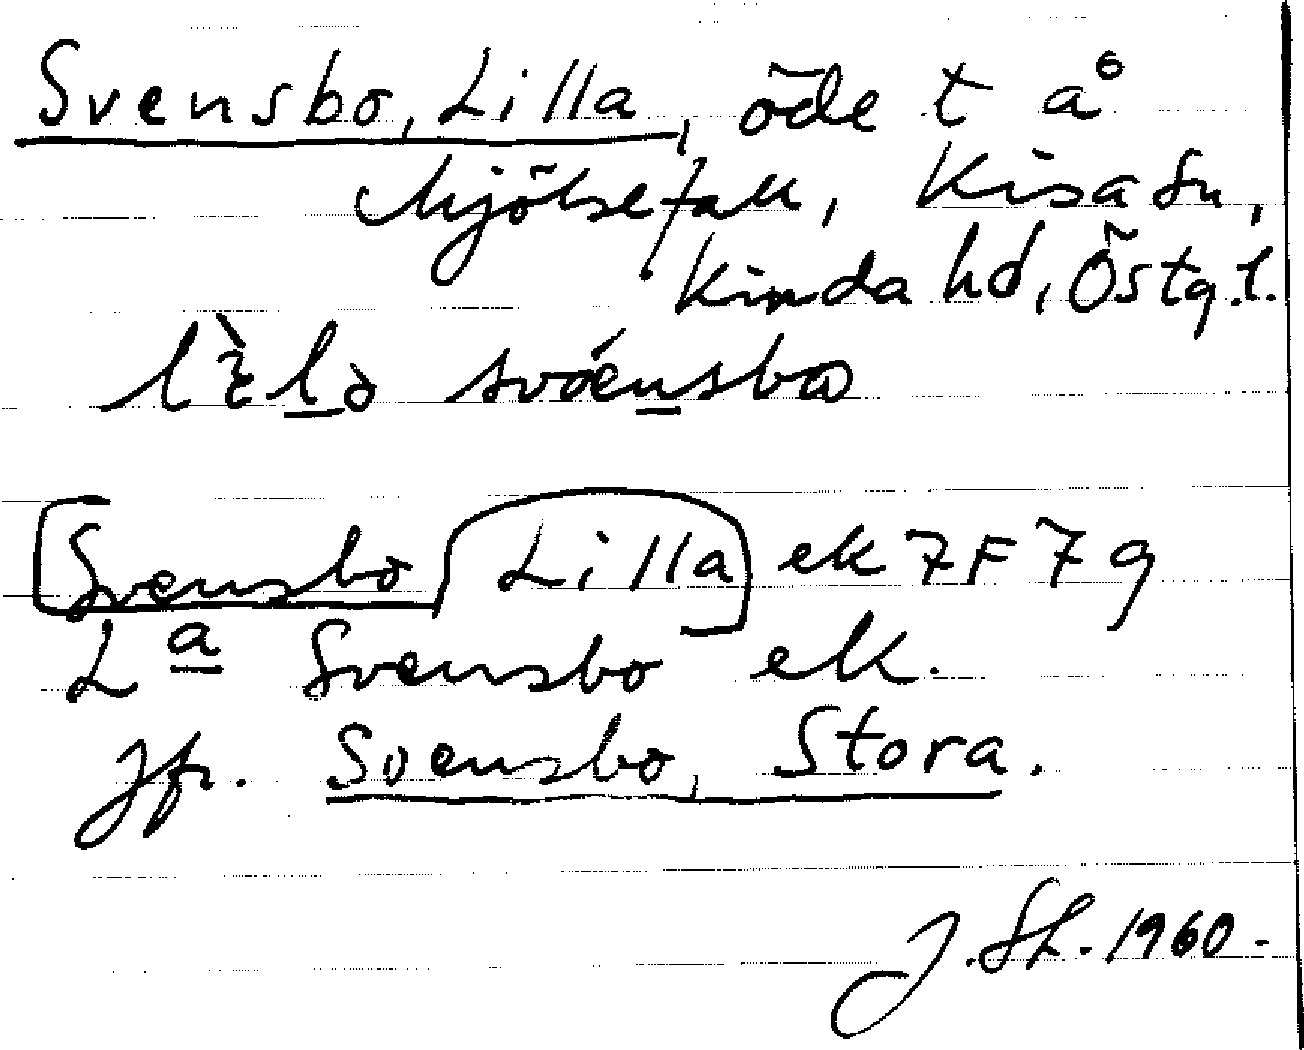 Svensbo, Lilla, öde t å
Mjölsefall, Kisa sn,
Kinda hd, Östg.l.
Svensbo Lilla ek 7F 7g
La Svensbo ek.
Jfr. Svensbo, Stora.
J.Sh. 1960.